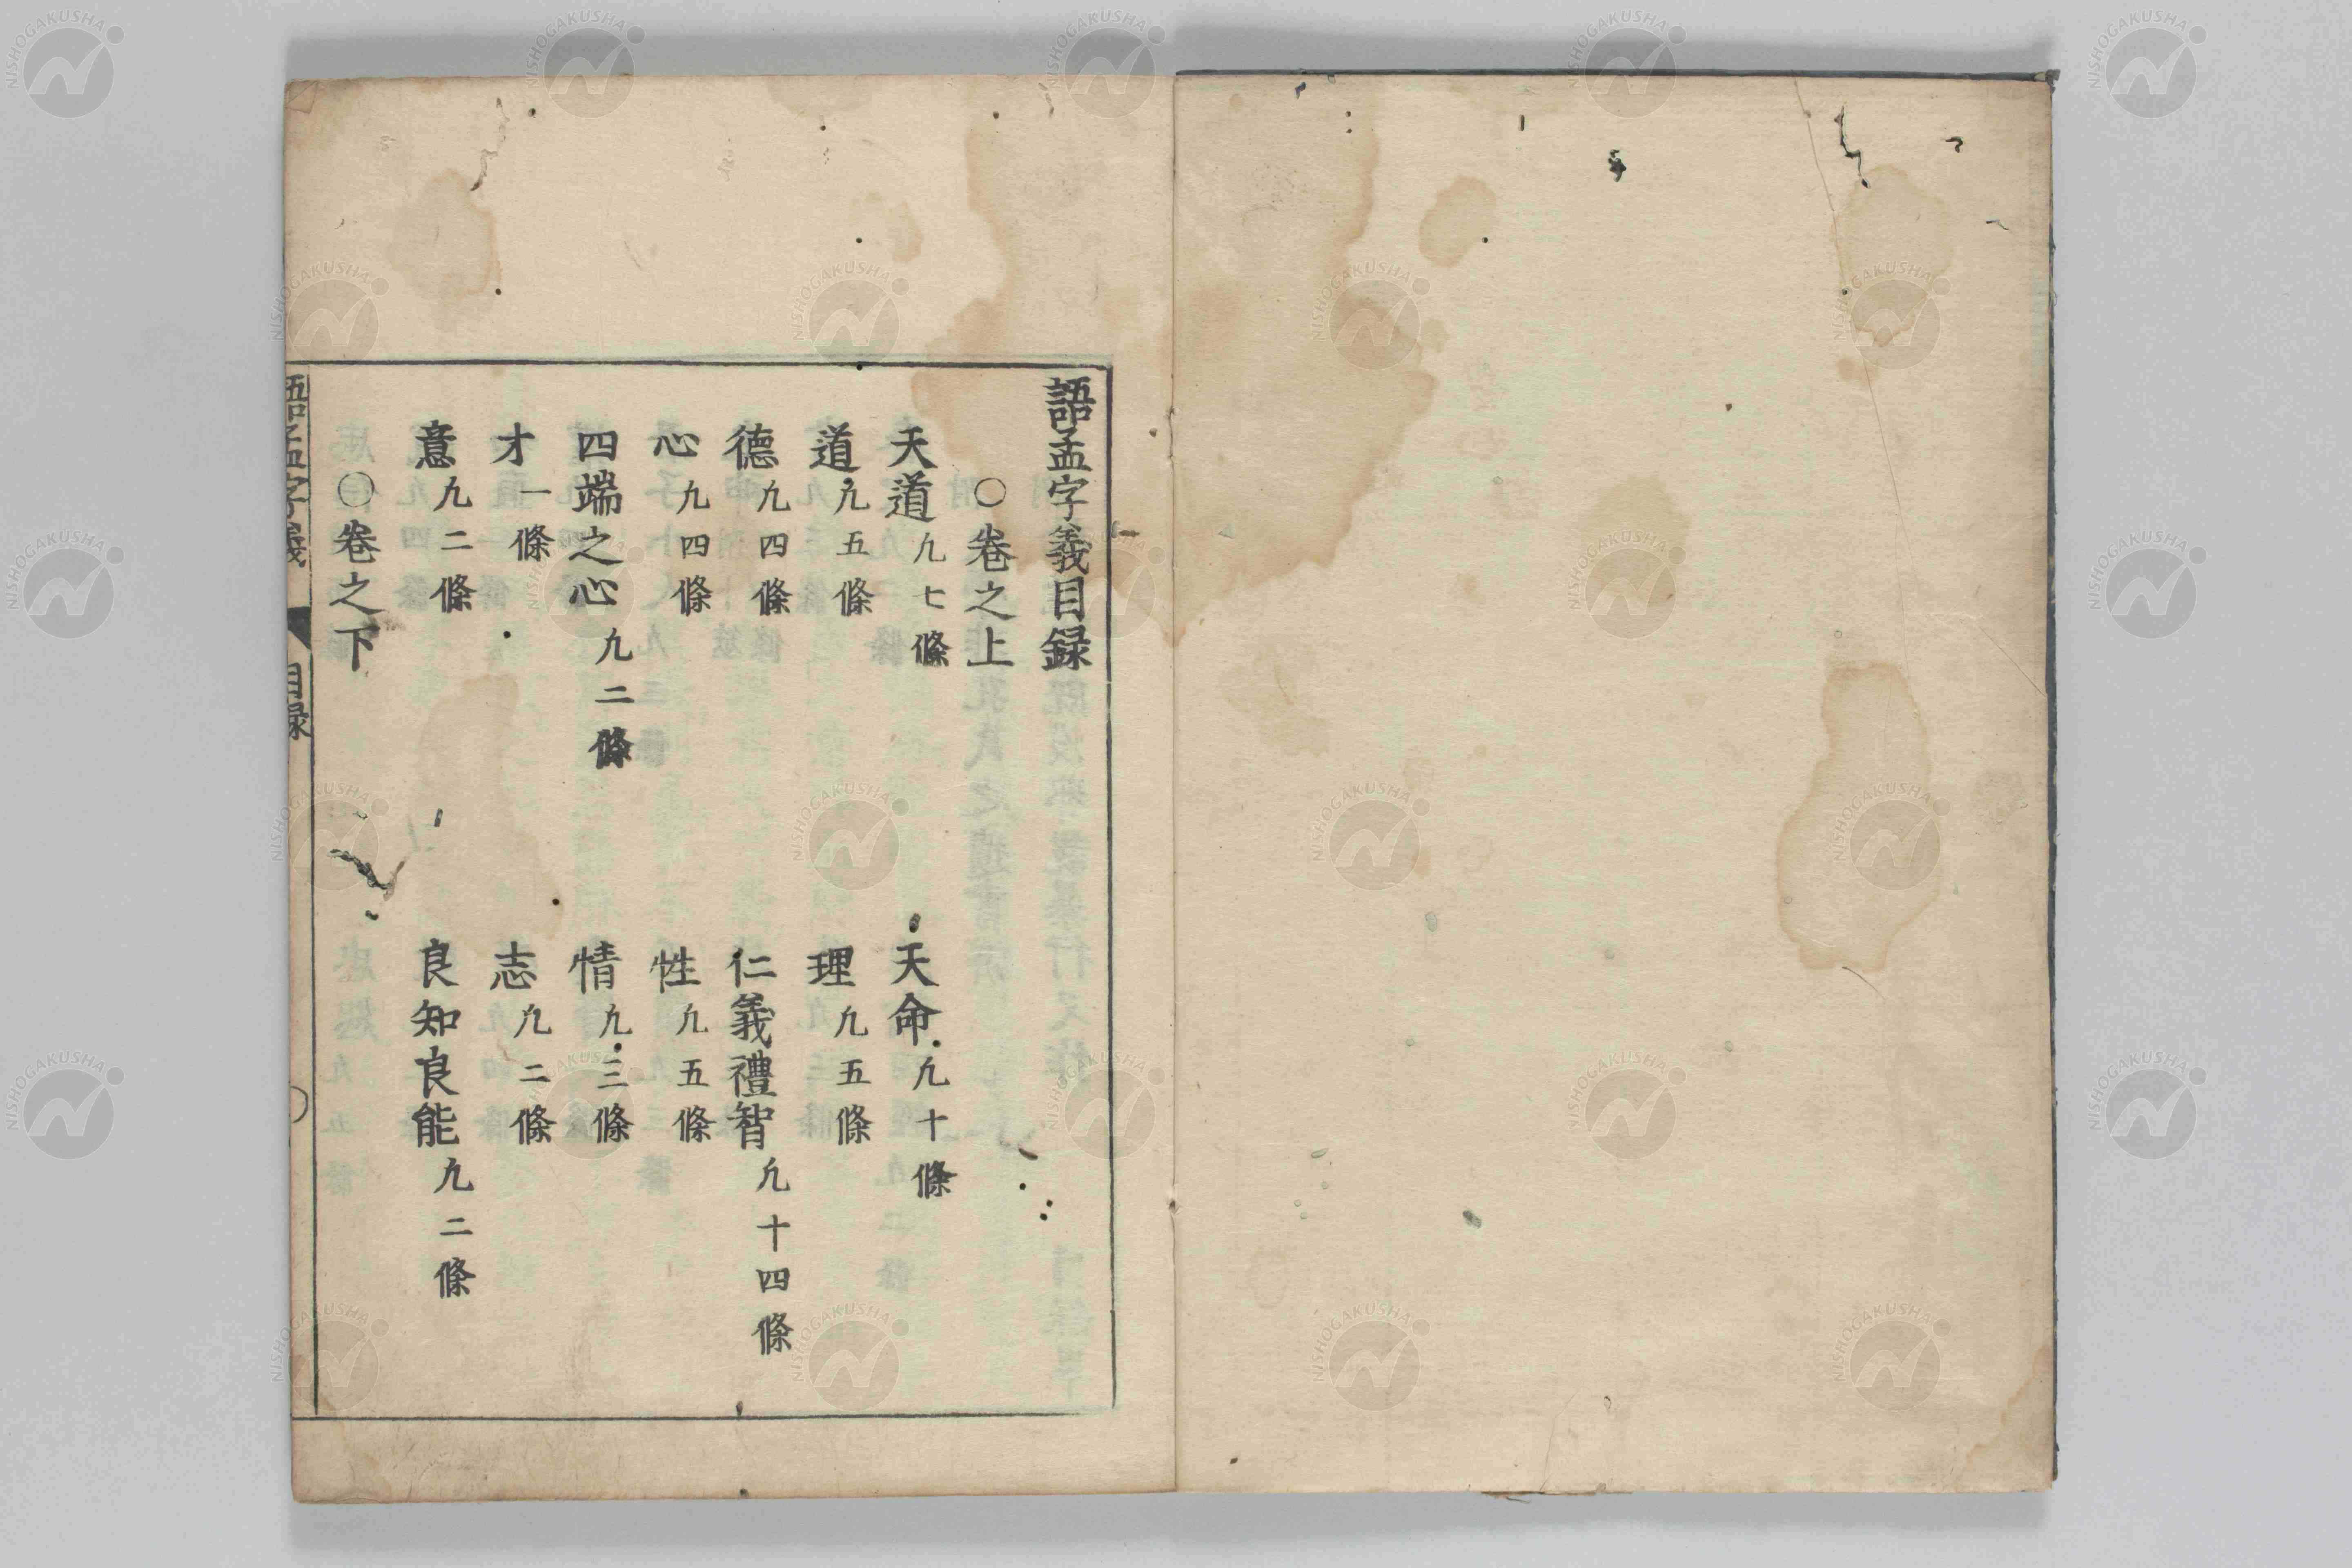 語孟字義目録
○卷之上
天道凢七條 天命凢十條
道凢五條 理凢五條
德凢四條 仁義禮智凢十四條
心凢四條 性凢五條
四端之心凢二條 情凢三條
才一條 志凢二條
意凢二條 良知良能凢二條
○卷之下
語孟字義 目録
NISHOGAKUSHA